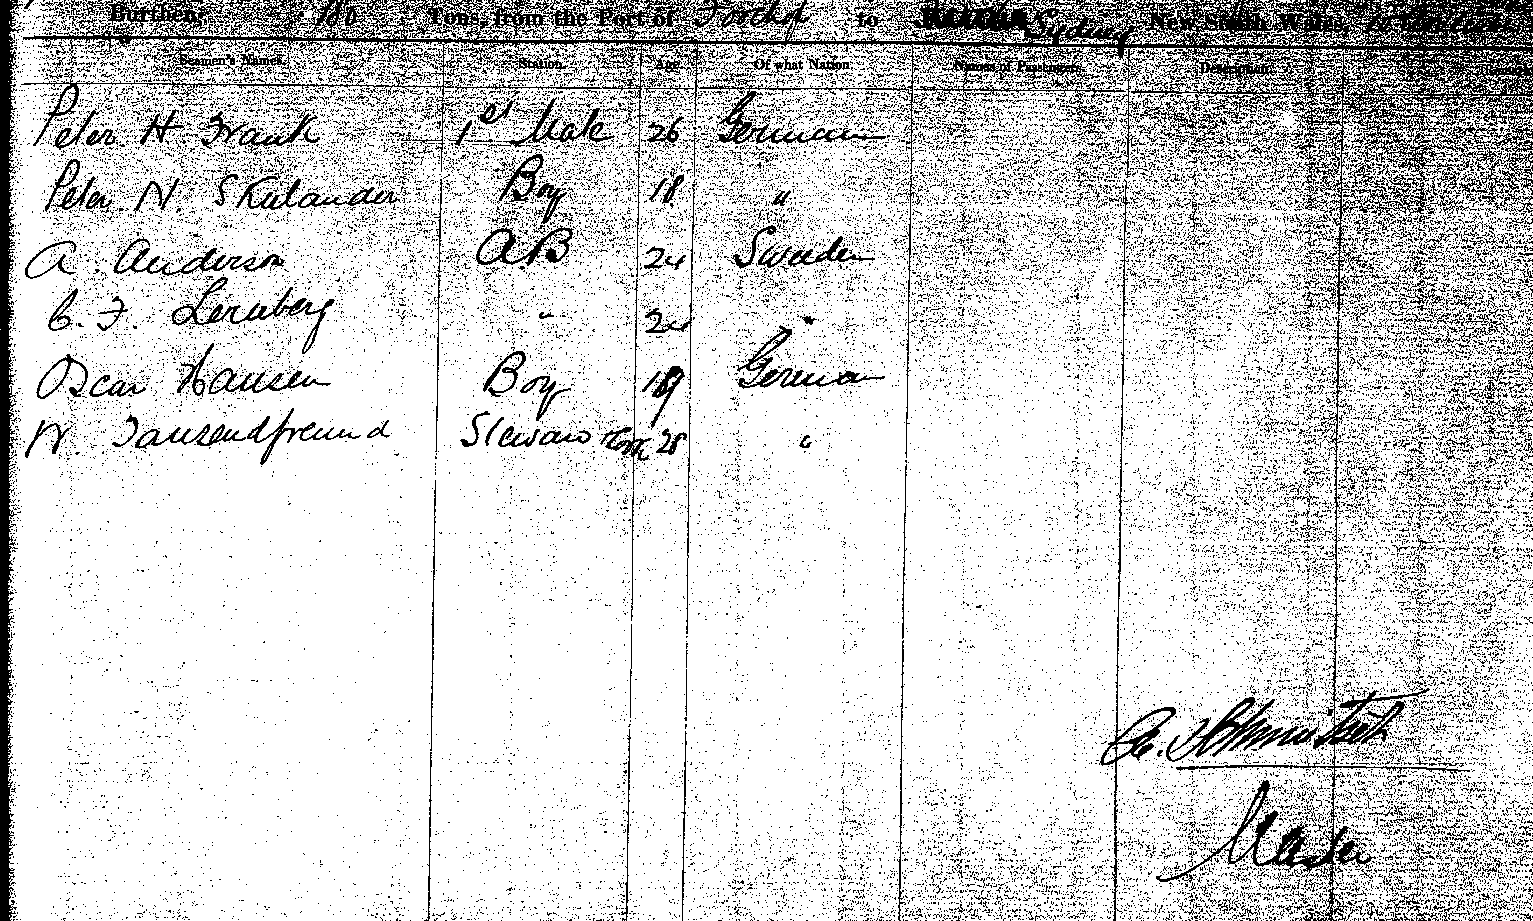 Burthen, 180 Tons, from the Port of Foochow to Sydney New South Wales,
Seamen's Names. Station. Age. Of what Nation. Names of Passengers. Description.
Peter H. Frank 1st Mate 26 German
Peter N. Skulander Boy 18 "
A. Anderson A.B 24 Sweden
C. F. Lernberg " 24 "
Oscar Hansen Boy 19 German
W. Tausendfreund Steward 28 "
Master